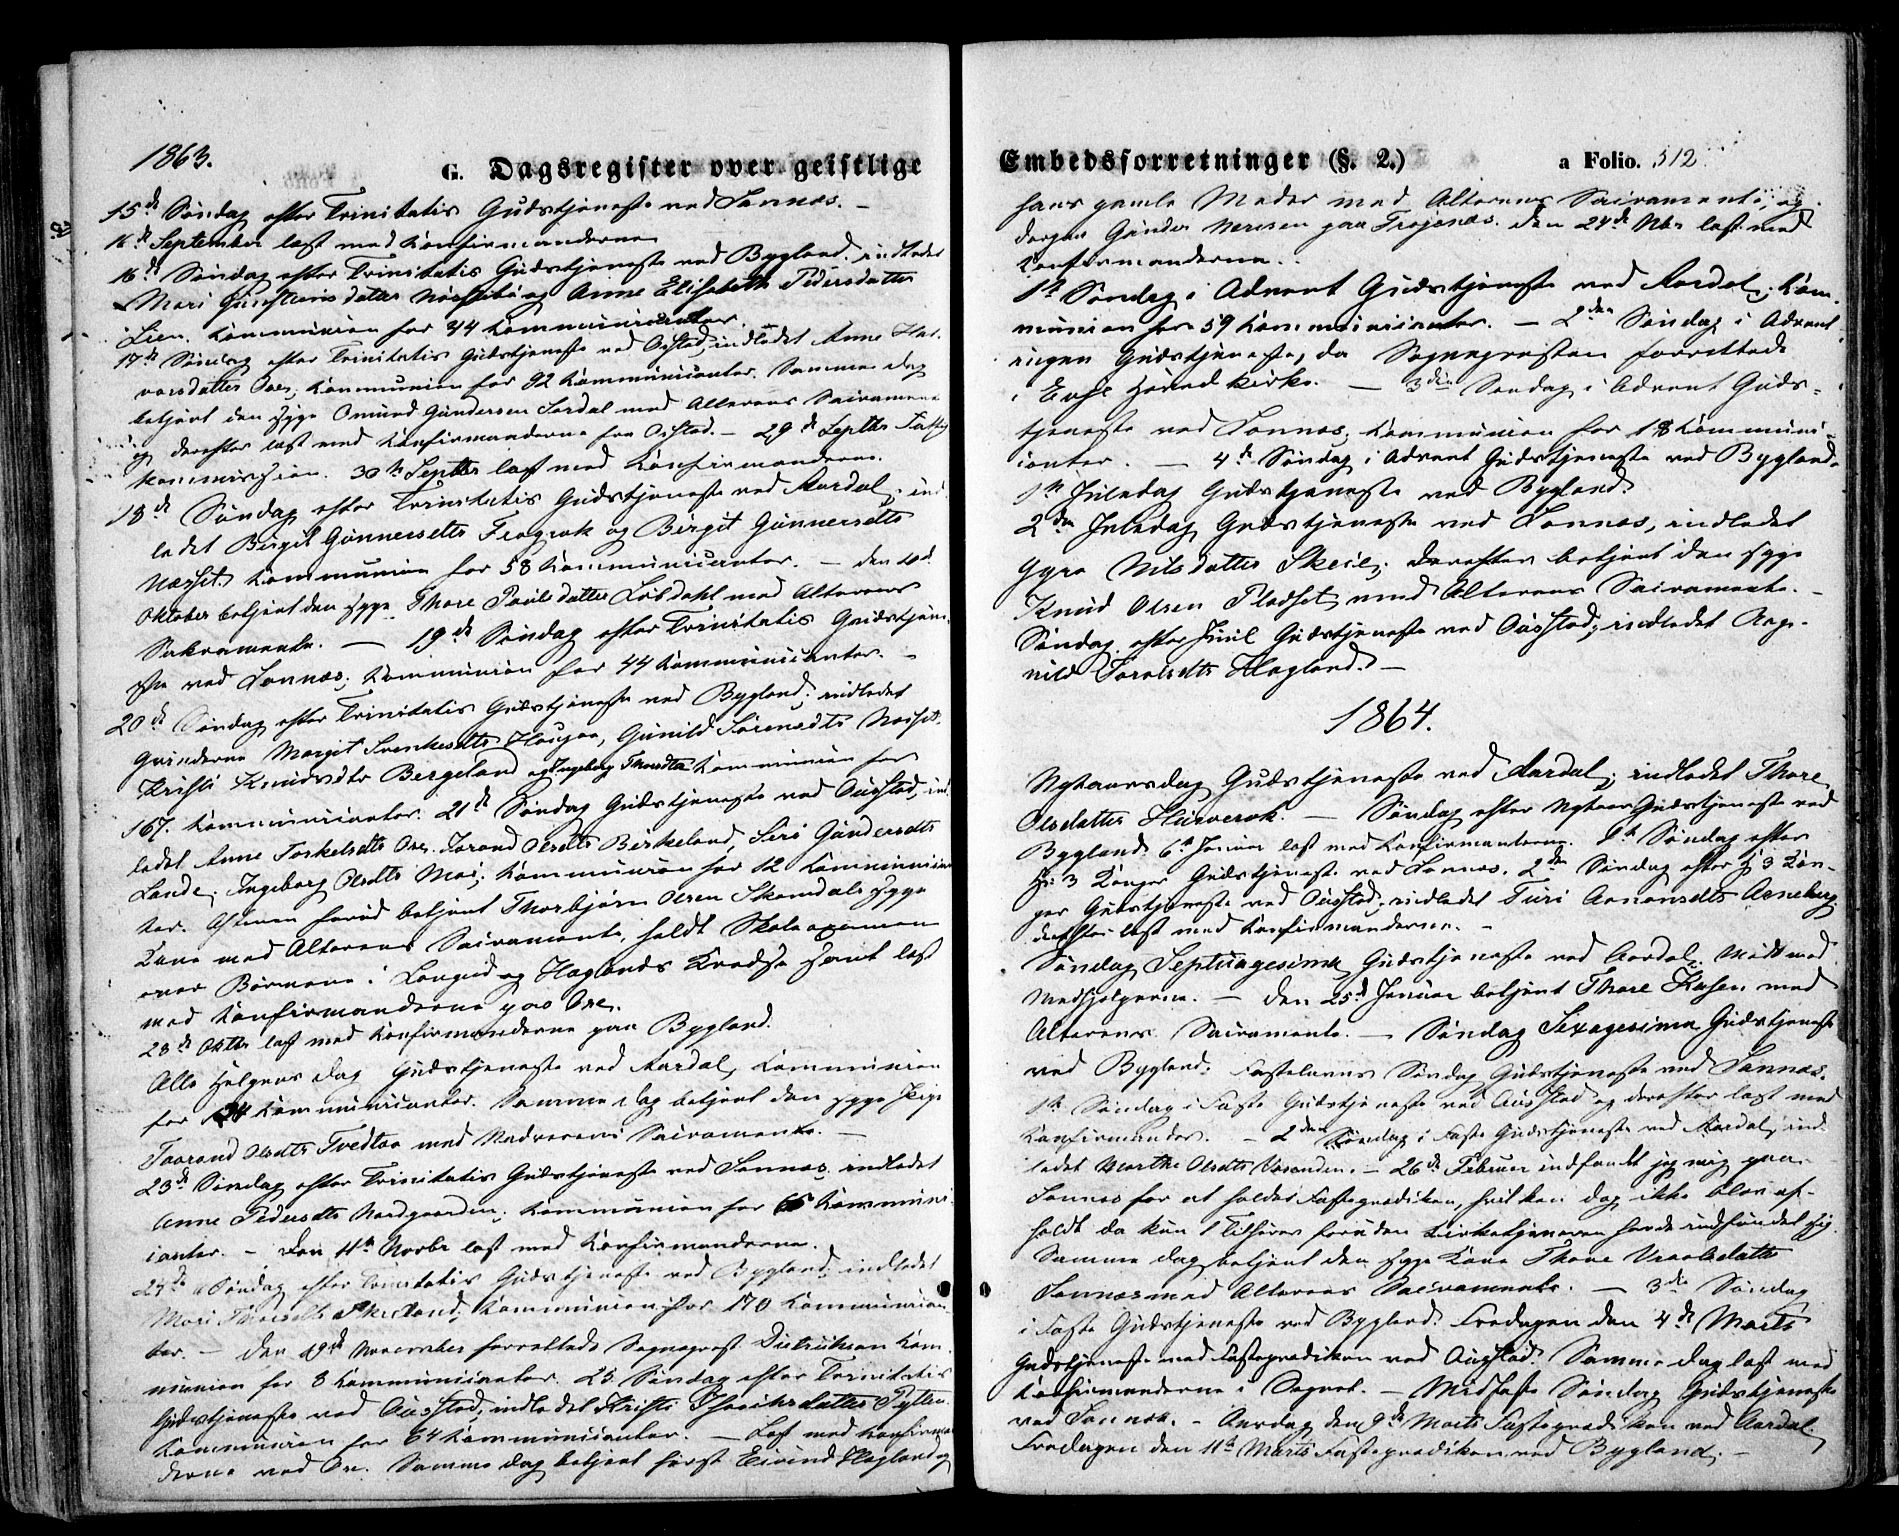 1863.
G. Dagsregister over geistlige
15de Søndag efter Trinitatis Gudstjeneste ved Sannæs. —
16de September læst med Konfirmanderne
16de Søndag efter Trinitatis Gudstjeneste ved Bygland; indledet
Mari Gunsteinsdatter Næssebø og Anne Elisabeth Pedersdatter
Lien. Kommunion for 44 Kommunicanter.
17de Søndag efter Trinitatis Gudstjeneste ved Osstad, indledet Anne Hal-
vorsdatter Ose; Kommunion for 92 Kommunicanter. Samme dag
betjent den syge Omund Gundersen Sordal med Alterens Sacramente
og derefter læst med Konfirmanderne fra Osstad. — 29de Septbr Fattig
kommission. 30te Septbr læst med Konfirmanderne.
18de Søndag efter Trinitatis Gudstjeneste ved Aardal; ind
ledet Birgit Gunnersdtr Frøyrak og Birgit Gunnersdtr
Næsset. Kommunion for 58 Kommunicanter. — den
Oktober betjent den syge Thore Paulsdatter Løbdahl med Alterens
Sakramente. — 19de Søndag efter Trinitatis Gudstjene
ste ved Sannæs; Kommunion for 44 Kommunicanter. —
20de Søndag efter Trinitatis Gudstjeneste ved Bygland; indledet
qvinderne Margit Svenkesdtr Haugaa, Gunild Sørensdtr Næset,
Kristi Knudsdtr Bergeland og Ingeborg Thorsdtr Kommunion for
167. Kommunicanter. 21de Søndag Gudstjeneste ved Ausstad, ind
ledet Anne Torkelsdtr Ose. Jorand Olsdtr Birkeland, Siri Gundersdtr
Lande; Ingeborg Olsdtr Moi; Kommunion for 12 Kommunican
ter. Aftenen forud betjent Thorbjørn Olsen Skomedals syge
Kone med Alterens Sacramente, holdt Skoleexamen
over Børnene i Longerud og Haglands Kredse samt læst
med Konfirmanderne paa Ose.
28de Oktbr læst med Konfirmanderne paa Bygland.
Alle Helgens dag Gudstjeneste ved Aardal, Kommunion
for 24 Kommunicanter. Samme dag betjent den syge Pige
Taarand Olsdtr Tvedtaa med Nadverens Sacramente. —
23de Søndag efter Trinitatis Gudstjeneste ved Sannæs indledet
Anne Pedersdtr Nordgaarden; Kommunion for 65 Kommuni
canter. — Den 11te Novbr læst med Konfirmanderne.
24de Søndag efter Trinitatis Gudstjeneste ved Bygland; indledet
Mari Skeeland; Kommunion for 170 Kommunican
ter. — den 19de November forrettede Sognepræst Dietrichson Kom
munion for 8 Kommunicanter. 25 Søndag efter Trinitatis
Gudstjeneste ved Ausstad; indledet Kristi datter Pytten
Kommunion for 64 Kommunicanter. — Læst med Konfirman
derne ved Ose. Samme dag betjent først Eivind Hagland og
Embedsforretninger (§. 2.)
a Folio. 512
hans gamle Moder med Alterens Sacramente, og
dernæst Gunder Neresen paa Frøysnæs. den 24de Nbr læst med
Konfirmanderne.
1ste Søndag i Advent Gudstjeneste ved Aardal; Kom-
munion for 59 Kommunicanter. — 2den Søndag i Advent
ingen Gudstjeneste, da Sognepræsten forrettede
i Evje Hoved kirke. — 3die Søndag i Advent Guds-
tjeneste ved Sannæs, Kommunion for 18 Kommuni
canter. — 4de Søndag i Advent Gudstjeneste ved Bygland.
1ste Juledag Gudstjeneste ved Bygland.
2den Juledag Gudstjeneste ved Sannæs, indledet
Gyro Nilsdatter Skeie; derefter betjent den syge
Knud Olsen Pladset med Alterens Sacramente. —
Søndag efter Juul Gudstjeneste ved Ausstad; indledet Rag-
nild Taralsdtr Hagland. —
1864.
Nytaarsdag Gudstjeneste ved Aardal; indledet Thore
Olsdatter Hurverak. — Søndag efter Nytaar Gudstjeneste ved
Bygland. 6te Januar læst med Konfirmanterne. 1ste Søndag efter
H: 3 Konger Gudstjeneste ved Sannæs. 2den Søndag efter H: 3 Kon-
ger Gudstjeneste ved Ausstad; indledet Turi Aanonsdtr Arneberg
derefter læst med Konfirmanderne. —
Søndag Septuagesima Gudstjeneste ved Aardal. Mødt med
Medhjelperne. — Den 25de Januar betjent Thore Kusen med
Alterens Sacramente. — Søndag Sexagesima Gudstjeneste
ved Bygland. Fastelavns Søndag Gudstjeneste ved Sannæs.
1ste Søndag i Faste Gudstjeneste ved Ausstad og derefter læst med
Konfirmander. — 2den Søndag i Faste Gudstjeneste ved Aardal, ind
ledet Marthe Olsdtr Vasenden. — 26de Februar indfandt jeg mig paa
Sannæs for at holde Fasteprædiken, hvilken dog ikke blev af-
holdt da kun 1 Tilhører foruden Kirketjeneren havde indfundet sig.
Samme dag betjent den syge Kone Thone Vraalsdatter
Sannæs med Alterens Sacramente. — 3die Søndag
i Faste Gudstjeneste ved Bygland. Fredagen den 4de Marts
Gudstjeneste med Fasteprædiken ved Ausstad. Samme dag læst med
Konfirmanderne i Sognet. — Midfaste Søndag Gudstjeneste
ved Sannæs. — Onsdag den 9de Marts Fasteprædiken ved Aardal.
Fredagen den 11te Marts Fasteprædiken ved Bygland. —